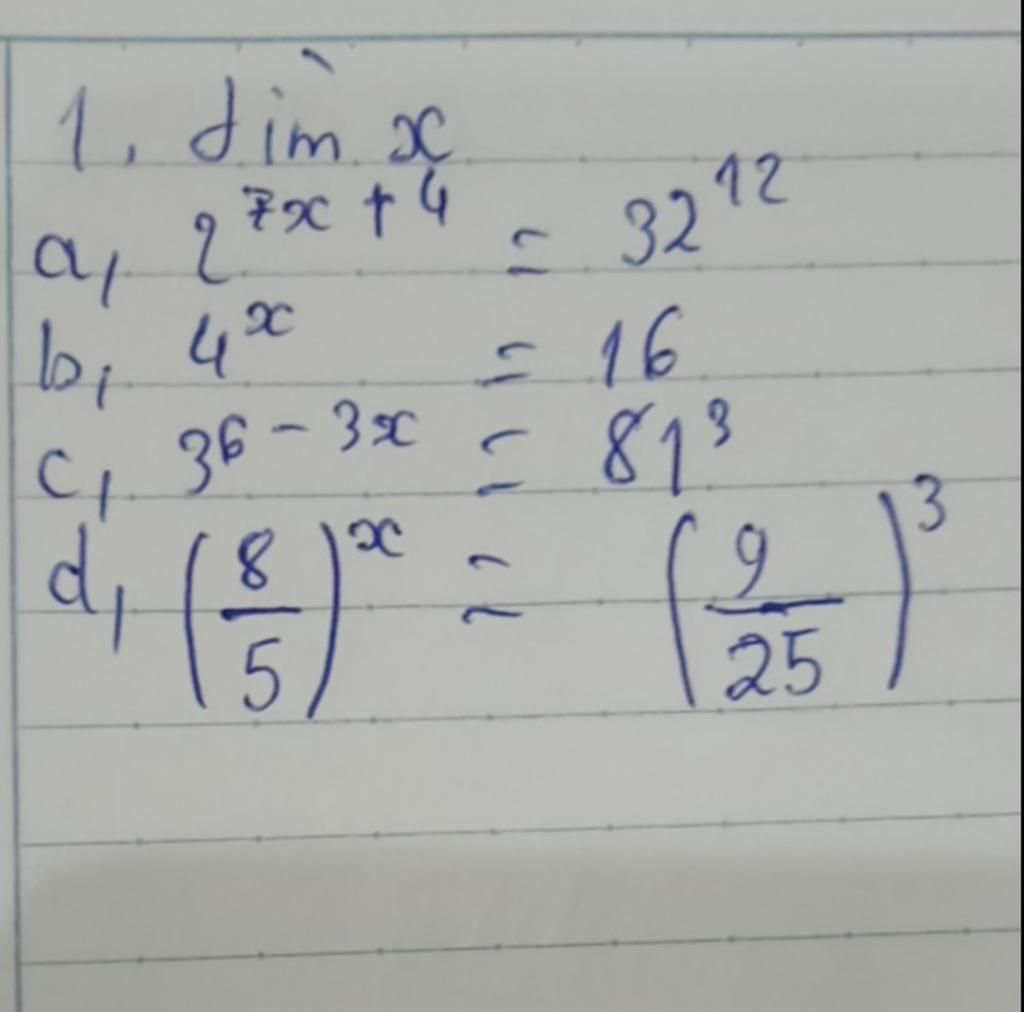 1, tìm x
a, 2^{7x + 4} = 32^{12}
b, 4^{x} = 16
c, 3^{6 - 3x} = 81^{3}
d, (8/5)^{x} = (9/25)^{3}